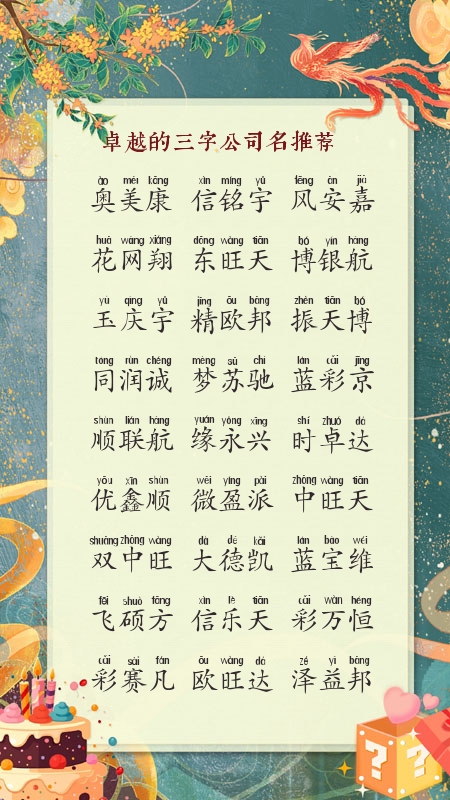 卓越的三字公司名推荐
ào měi kāng xìn míng yǔ fēng ān jiā
奥美康 信铭宇 风安嘉
huā wǎng xiáng dōng wàng tiān bó yín háng
花网翔 东旺天 博银航
yù qìng yǔ jīng ōu bāng zhèn tiān bó
玉庆宇 精欧邦 振天博
tóng rùn chéng mèng sū chí lán cǎi jīng
同润诚 梦苏驰 蓝彩京
shùn lián háng yuán yǒng xīng shí zhuó dá
顺联航 缘永兴 时卓达
yōu xīn shùn wēi yíng pài zhōng wàng tiān
优鑫顺 微盈派 中旺天
shuāng zhōng wàng dà dé kǎi lán bǎo wéi
双中旺 大德凯 蓝宝维
fēi shuò fāng xìn lè tiān cǎi wàn héng
飞硕方 信乐天 彩万恒
cǎi sài fán ōu wàng dá zé yì bāng
彩赛凡 欧旺达 泽益邦
? ?